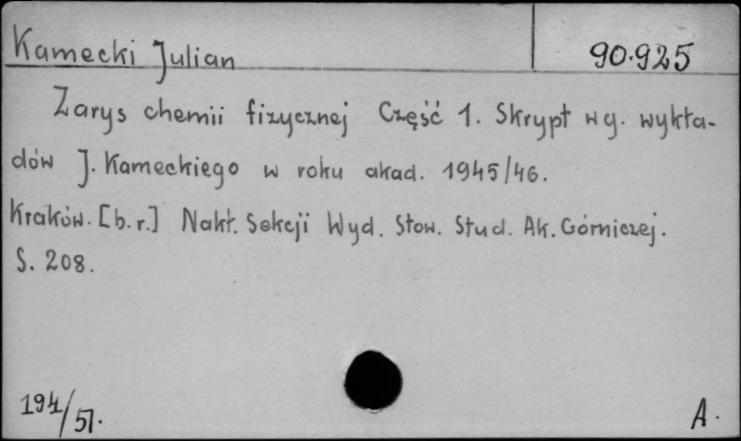 Kamecki Julian
90.925
Zarys chemii fizycznej Część 1. Skrypt wg. wykła-
dów J. Kameckiego w roku akad. 1945/46.
Kraków. [b.r.] Nakł. Sekcji Wyd. Stow. Stud. Ak. Górniczej.
S. 208.
194/51.
A.